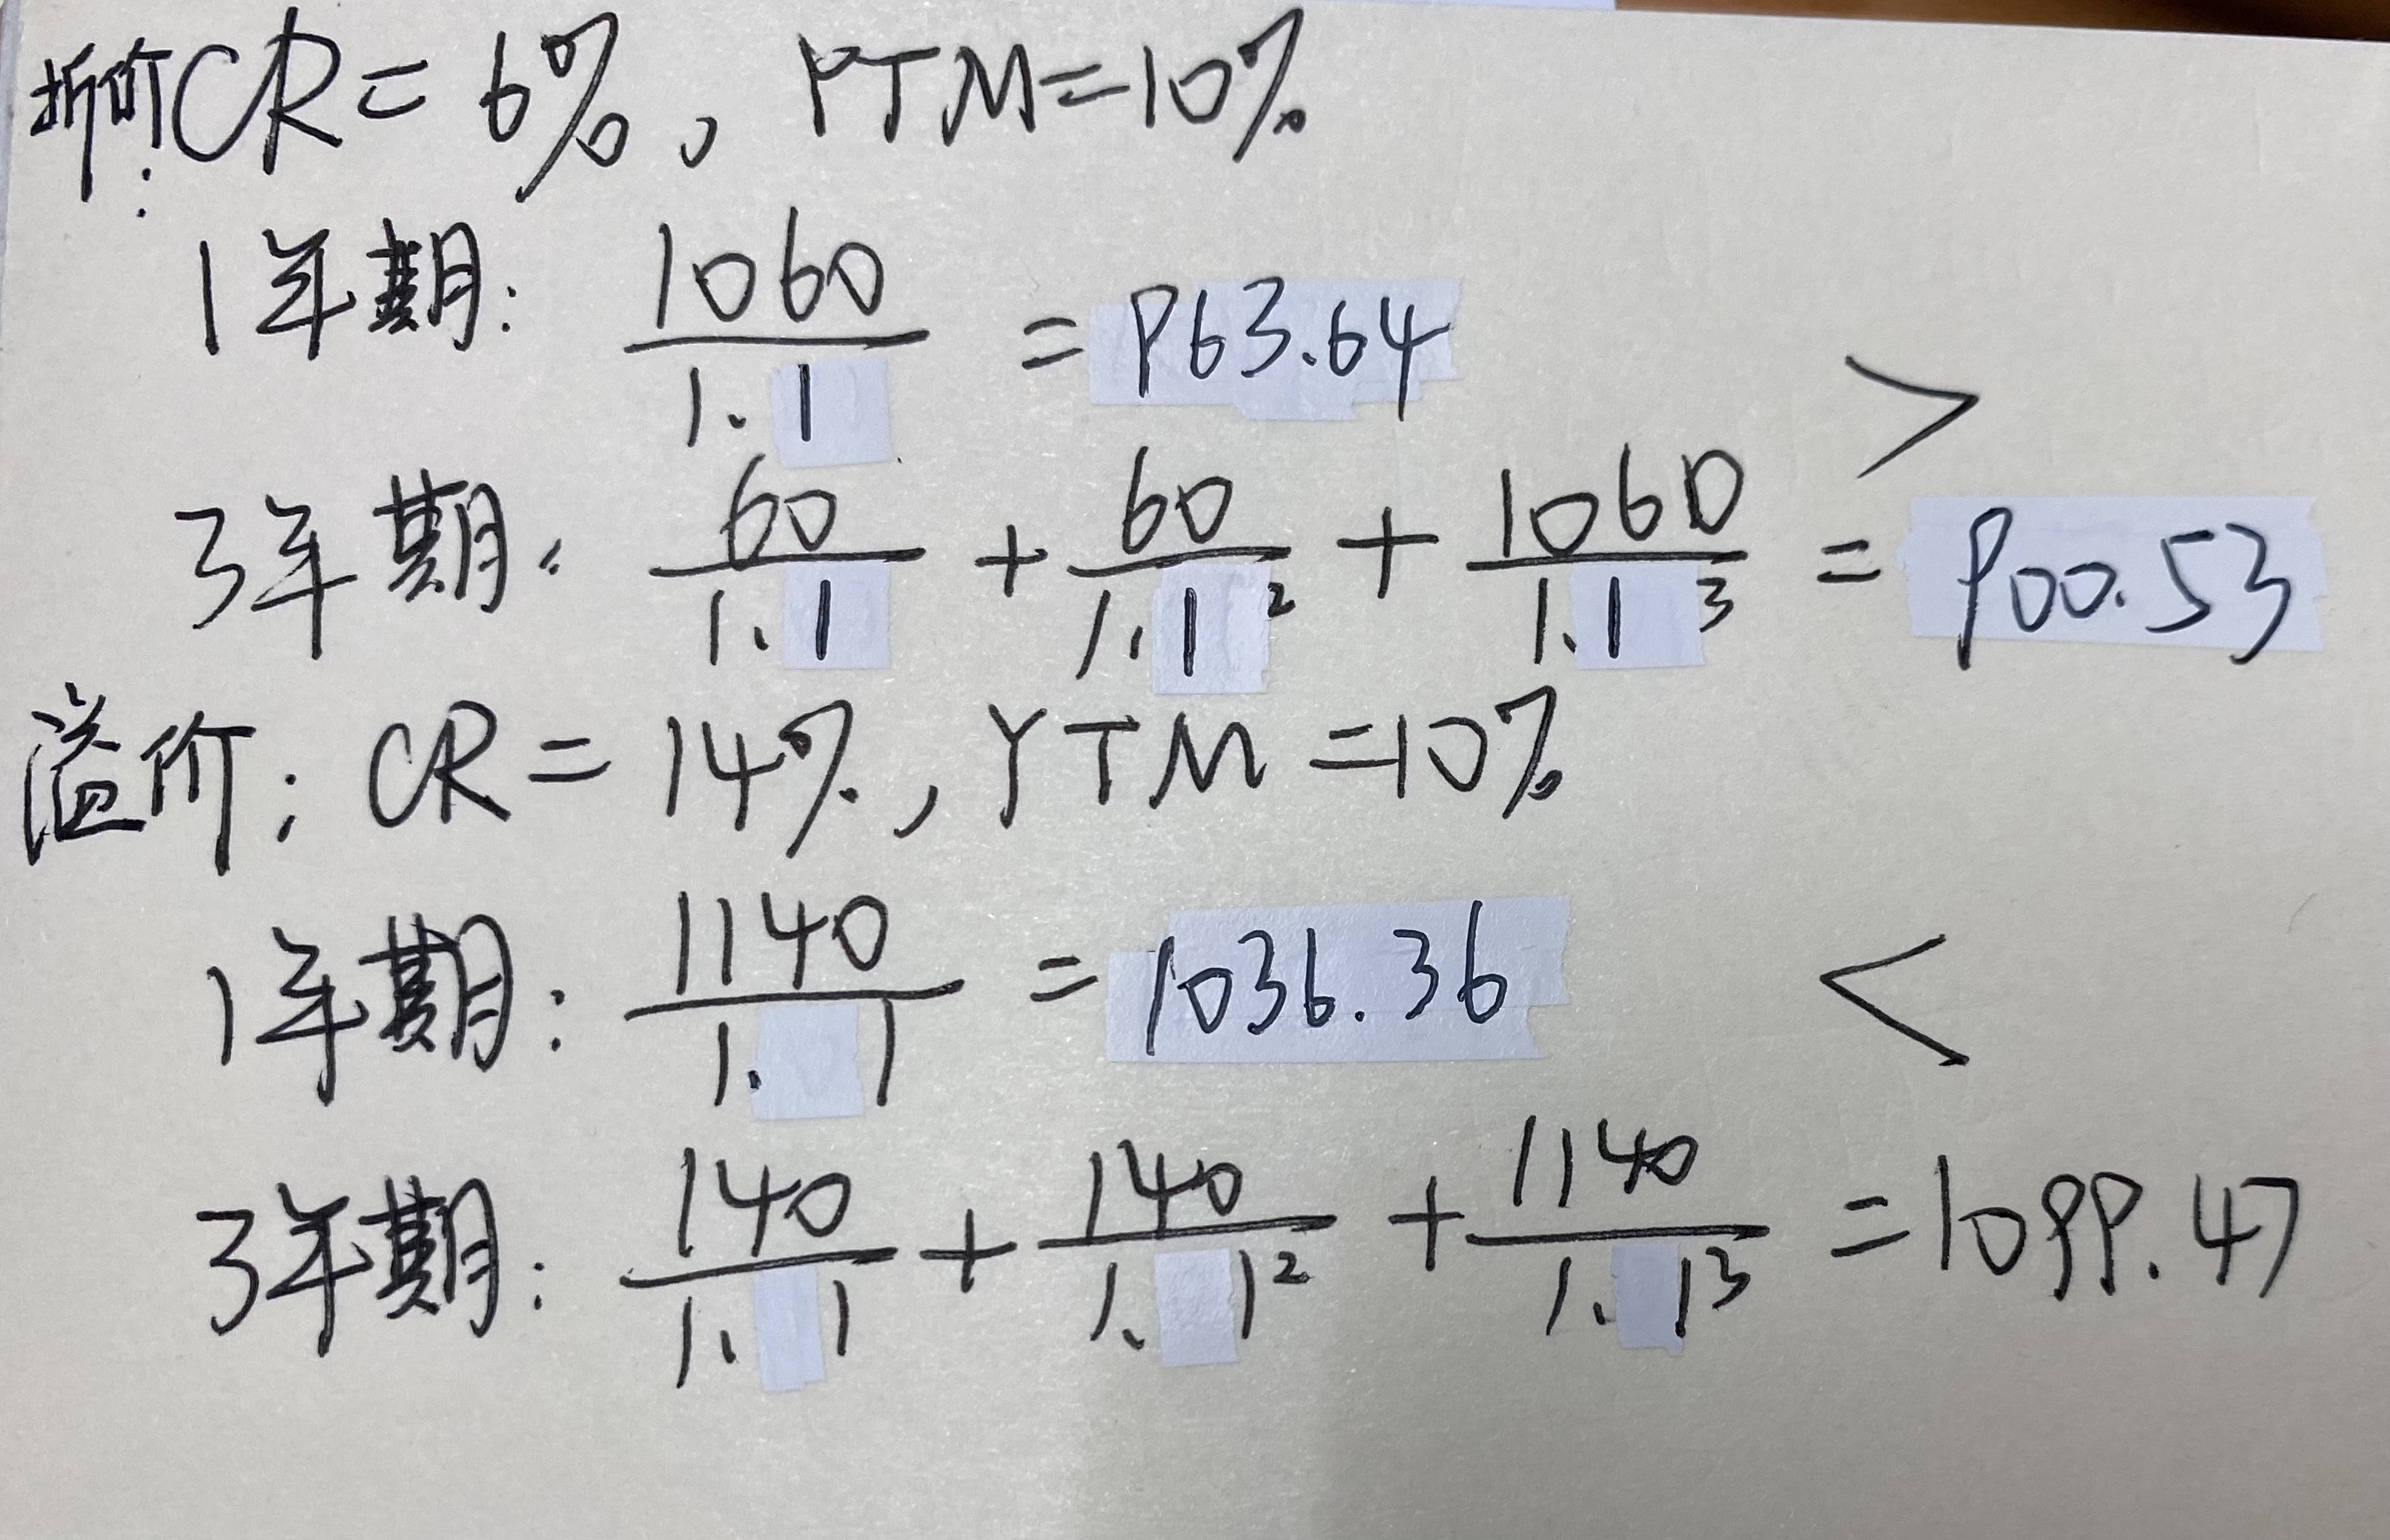 折价: CR = 6%, YTM=10%
1年期: 1060/1.1 = 963.64
>
3年期: 60/1.1 + 60/1.1² + 1060/1.1³ = 900.53
溢价: CR = 14%, YTM =10%
1年期: 1140/1.1 = 1036.36
<
3年期: 140/1.1 + 140/1.1² + 1140/1.1³ = 1099.47